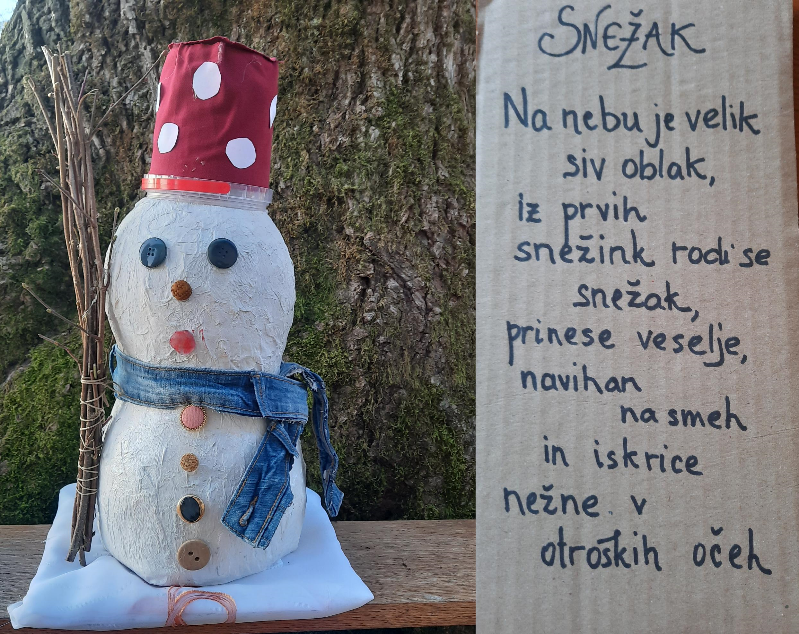 SNEŽAK
Na nebu je velik
siv oblak,
iz prvih
snežink rodi se
snežak,
prinese veselje,
navihan
nasmeh
in iskrice
nežne v
otroških očeh